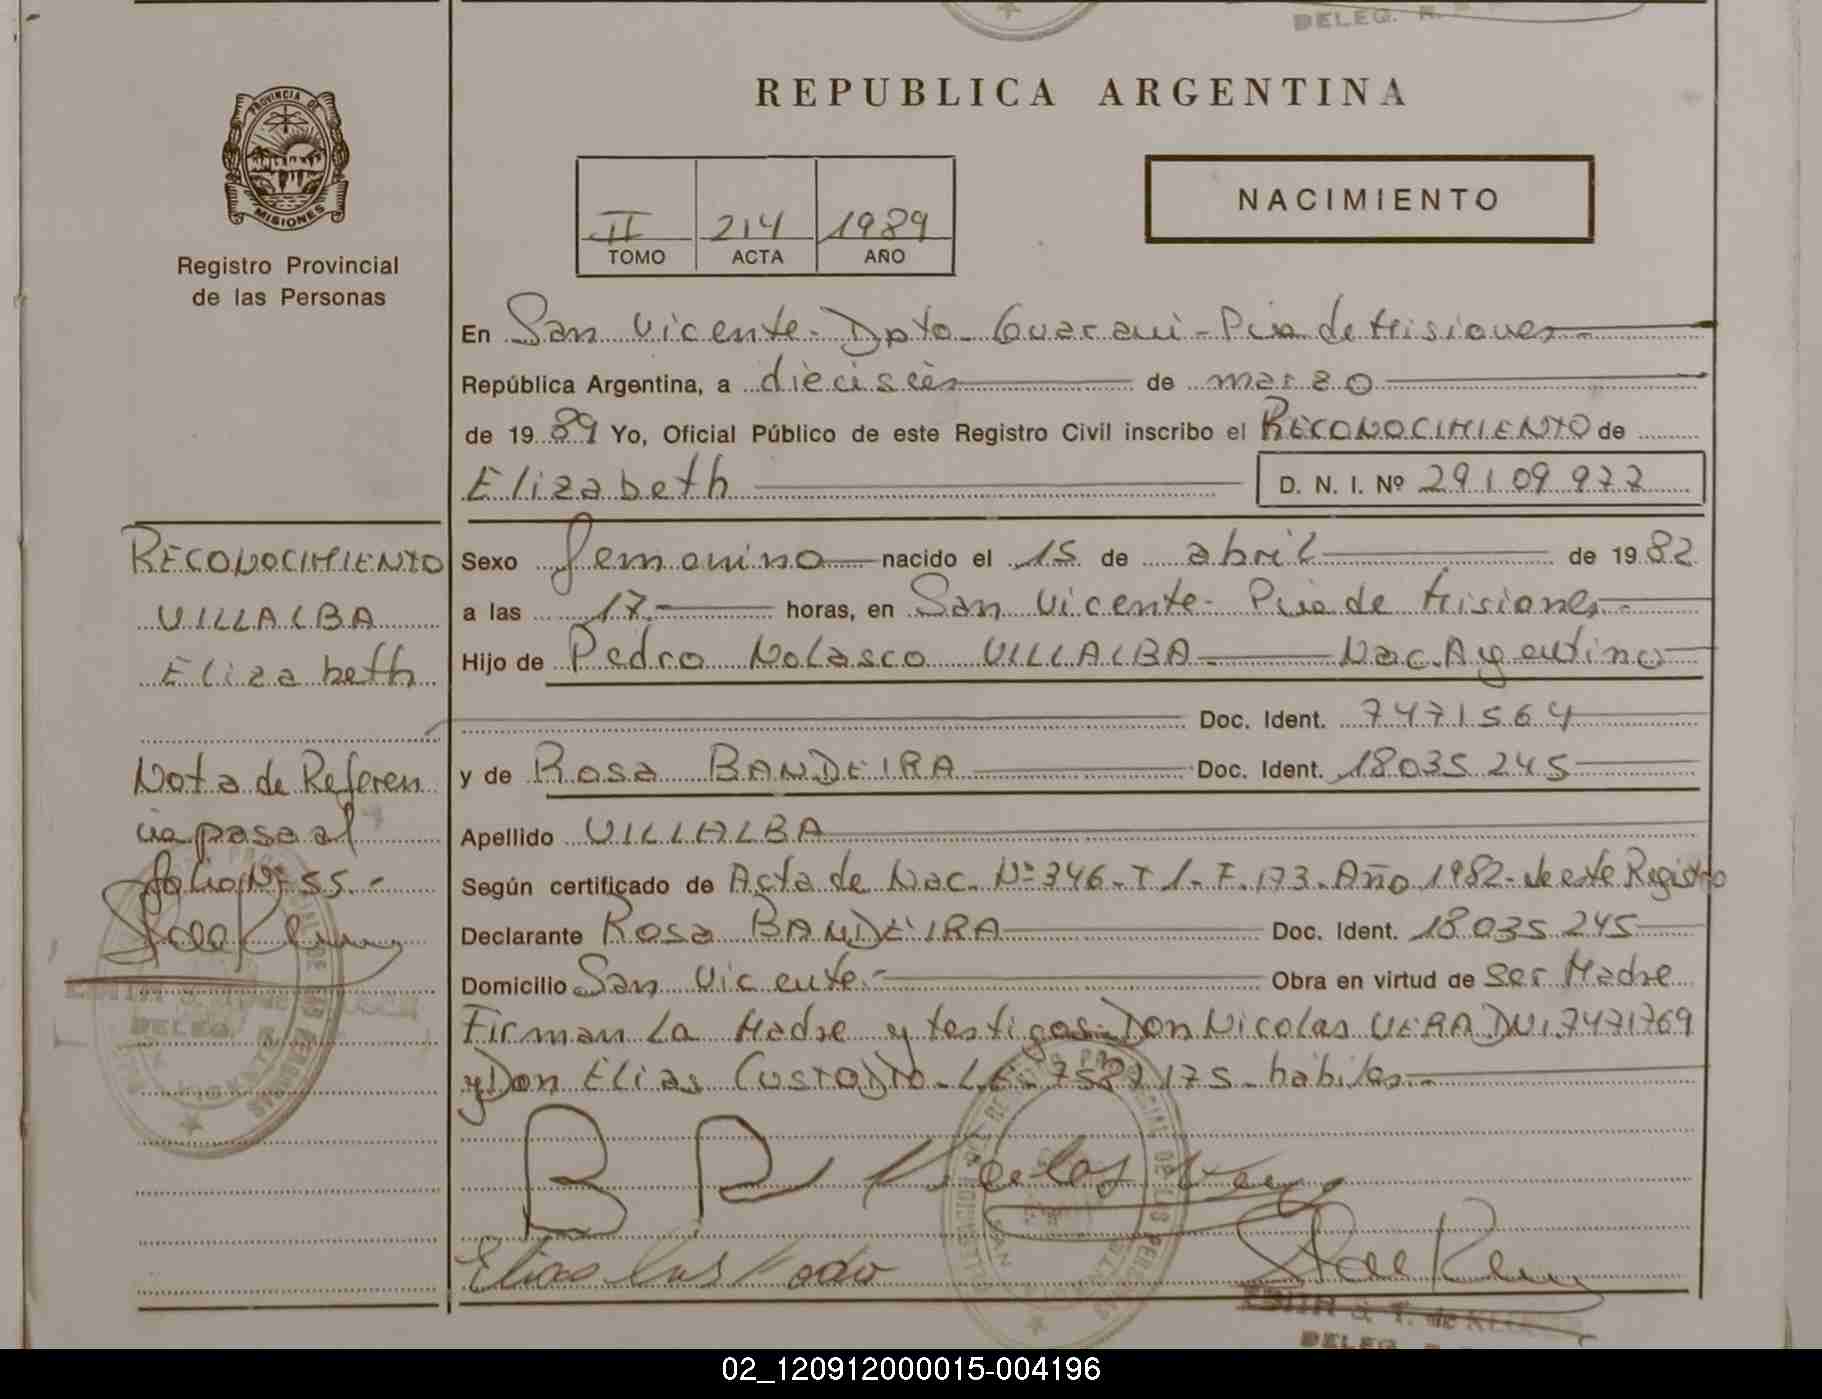 DELEG. R.
PROVINCIA DE
MISIONES
Registro Provincial
de las Personas
REPUBLICA ARGENTINA
II 214 1989
TOMO ACTA AÑO
NACIMIENTO
En San Vicente - Dpto - Guaraní - Pcia de Misiones -
República Argentina, a dieciséis de marzo
de 1989 Yo, Oficial Público de este Registro Civil inscribo el RECONOCIMIENTO de
Elizabeth D. N. I. Nº 29.109.977
RECONOCIMIENTO
VILLALBA
Elizabeth
Nota de Referen
cia pasa al
folio Nº 55.-
Sexo femenino nacido el 15 de abril de 1982
a las 17 horas, en San Vicente - Pcia de Misiones -
Hijo de Pedro Nolasco VILLALBA - Nac. Argentino
Doc. Ident. 7471564
y de Rosa BANDEIRA Doc. Ident. 18035245
Apellido VILLALBA
Según certificado de Acta de Nac. Nº 346 - T 1 - F. 173 - Año 1982 - de este Registro
Declarante Rosa BANDEIRA Doc. Ident. 18.035.245
Domicilio San Vicente - Obra en virtud de ser Madre
Firman La Madre y testigos Don Nicolas VERA DNI. 7471769
y Don Elias CUSTODIO - L.E. 7587175 - hábiles -
B R Nicolas Vera
Elias Custodio
DELEG.
02_120912000015-004196